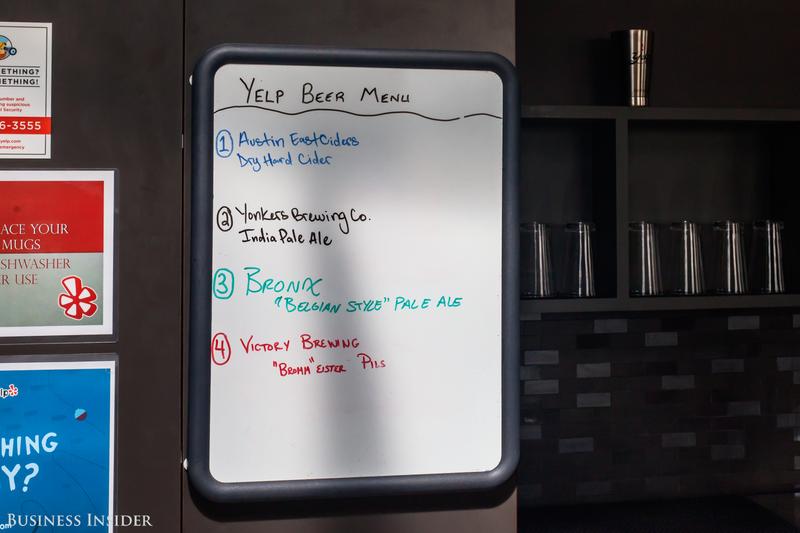 ETHING?
ETHING!
umber and
ng suspicious
l Security
6-3555
yelp.com
emergency
ACE YOUR
MUGS
SHWASHER
R USE
lp
HING
Y?
om
YELP BEER MENU
1 Austin EastCiders
Dry Hard Cider
2 Yonkers Brewing Co.
India Pale Ale
3 BRONX
"BELGIAN STYLE" PALE ALE
4 VICTORY BREWING
PILS
BUSINESS INSIDER